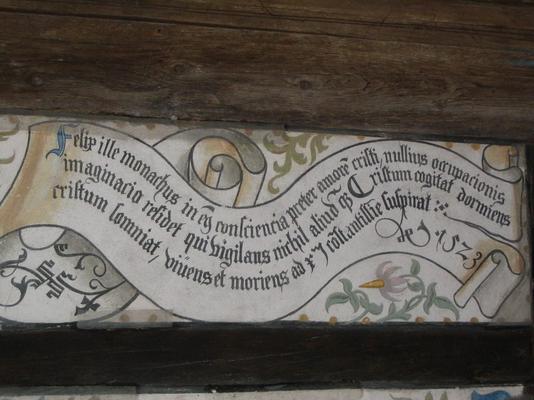 Felix ille monachus in cuius consciencia preter amorē cristi, nullius occupacionis
imaginacio residet qui vigilans nichil aliud qͫ Cristum cogitat dormiens
cristum somniat, viuens et moriens ad
constantissīe suspirat
1523